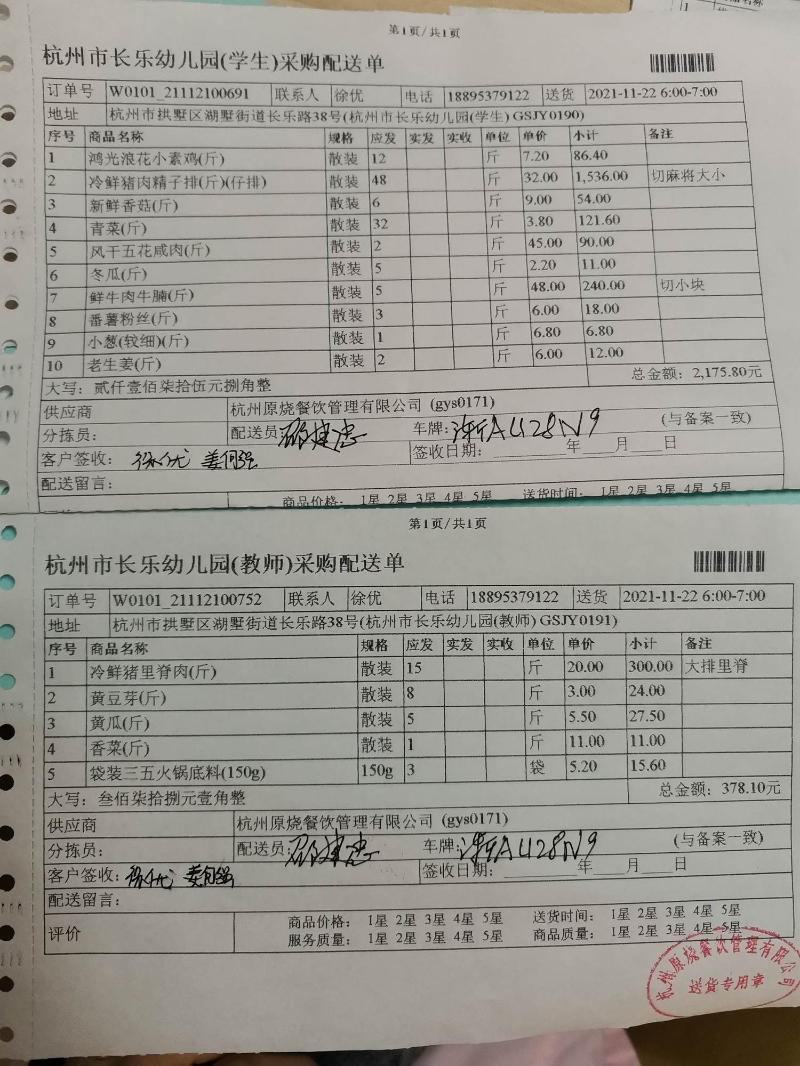 第1页/共1页
杭州市长乐幼儿园(学生)采购配送单
订单号 W0101_21112100691 联系人 徐优 电话 18895379122 送货 2021-11-22 6:00-7:00
地址 杭州市拱墅区湖墅街道长乐路38号(杭州市长乐幼儿园(学生) GSJY0190)
序号 商品名称 规格 应发 实发 实收 单位 单价 小计 备注
1 鸿光浪花小素鸡(斤) 散装 12 斤 7.20 86.40
2 冷鲜猪肉精子排(斤)(仔排) 散装 48 斤 32.00 1,536.00 切麻将大小
3 新鲜香菇(斤) 散装 6 斤 9.00 54.00
4 青菜(斤) 散装 32 斤 3.80 121.60
5 风干五花咸肉(斤) 散装 2 斤 45.00 90.00
6 冬瓜(斤) 散装 5 斤 2.20 11.00
7 鲜牛肉牛腩(斤) 散装 5 斤 48.00 240.00 切小块
8 番薯粉丝(斤) 散装 3 斤 6.00 18.00
9 小葱(较细)(斤) 散装 1 斤 6.80 6.80
10 老生姜(斤) 散装 2 斤 6.00 12.00
大写：贰仟壹佰柒拾伍元捌角整 总金额：2,175.80元
供应商 杭州原烧餐饮管理有限公司 (gys0171)
分拣员： 配送员： 车牌：浙AU28N9 (与备案一致)
客户签收：徐优 签收日期： 年 月 日
配送留言：
商品价格： 1星 2星 3星 4星 5星 送货时间： 1星 2星 3星 4星 5星
第1页/共1页
杭州市长乐幼儿园(教师)采购配送单
订单号 W0101_21112100752 联系人 徐优 电话 18895379122 送货 2021-11-22 6:00-7:00
地址 杭州市拱墅区湖墅街道长乐路38号(杭州市长乐幼儿园(教师) GSJY0191)
序号 商品名称 规格 应发 实发 实收 单位 单价 小计 备注
1 冷鲜猪里脊肉(斤) 散装 15 斤 20.00 300.00 大排里脊
2 黄豆芽(斤) 散装 8 斤 3.00 24.00
3 黄瓜(斤) 散装 5 斤 5.50 27.50
4 香菜(斤) 散装 1 斤 11.00 11.00
5 袋装三五火锅底料(150g) 150g 3 袋 5.20 15.60
大写：叁佰柒拾捌元壹角整 总金额：378.10元
供应商 杭州原烧餐饮管理有限公司 (gys0171)
分拣员： 配送员： 车牌：浙AU28N9 (与备案一致)
客户签收：徐优 签收日期： 年 月 日
配送留言：
评价 商品价格： 1星 2星 3星 4星 5星 送货时间： 1星 2星 3星 4星 5星
服务质量： 1星 2星 3星 4星 5星 商品质量： 1星 2星 3星 4星 5星
杭州原烧餐饮管理有限公司
送货专用章